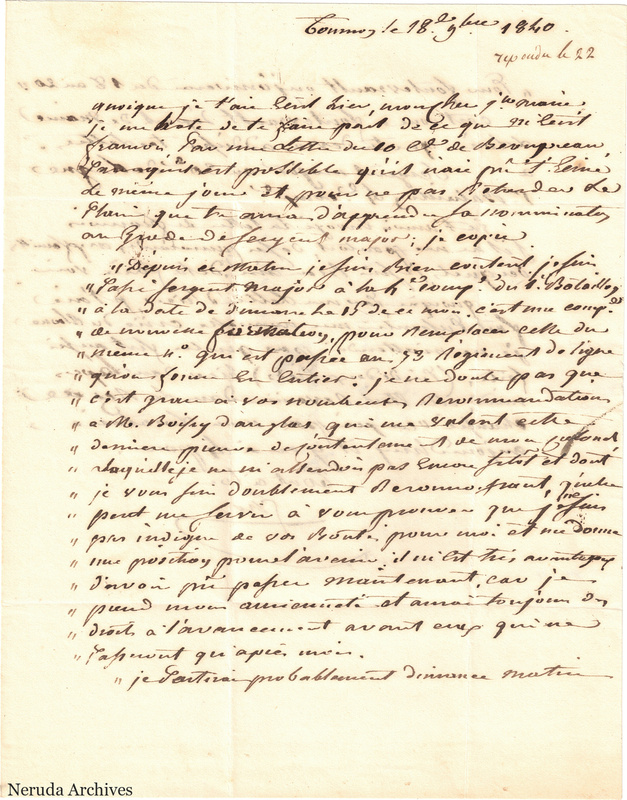 Tournus le 18 9bre 1840.
repondu le 22
quoique je t'aie Ecrit hier, mon cher
je me hate de te faire part de ce que m'Ecrit
francois Par une Lettre du 10 Ct de Beaupreau
Parcequ'il est possible qu'il n'aie pas t'Ecrire
Le même jour Et pour ne pas Retarder Le
Plaisir que tu auras d'apprendre sa nomination
au Grade de sergent major; je copie
" Depuis ce matin je suis Bien content, je suis
" Passé sergent major à la 4e comp. du 1er Bataillon
" à la date de dimanche 15 de ce mois. c'est une comp.
" de nouvelle formation, pour Remplacer celle du
" même no. qui est passée au 73 Régiment de ligne
" qu'on forme En Entier. je ne doute pas que
" c'est grace à vos nombreuses Recommandations
" à M. Boissy d'anglas qui me valent cette
" derniere preuve de contentement de mon Colonel
" Laquelle je ne m'attendois pas Encore sitôt et dont
" je vous suis doublement Reconnoissant, qu'elle
" peut me servir à vous prouver que je ne suis
" pas indigne de vos Bontés pour moi et me donne
" une position pour l'avenir; il m'Est très avantageux
" d'avoir pu passer maintenant, car je
" prend mon ancienneté et aurai toujours des
" droits à l'avancement avant ceux qui ne
" Passeront qu'après moi.
" je Partirai probablement dimance matin
Neruda Archives